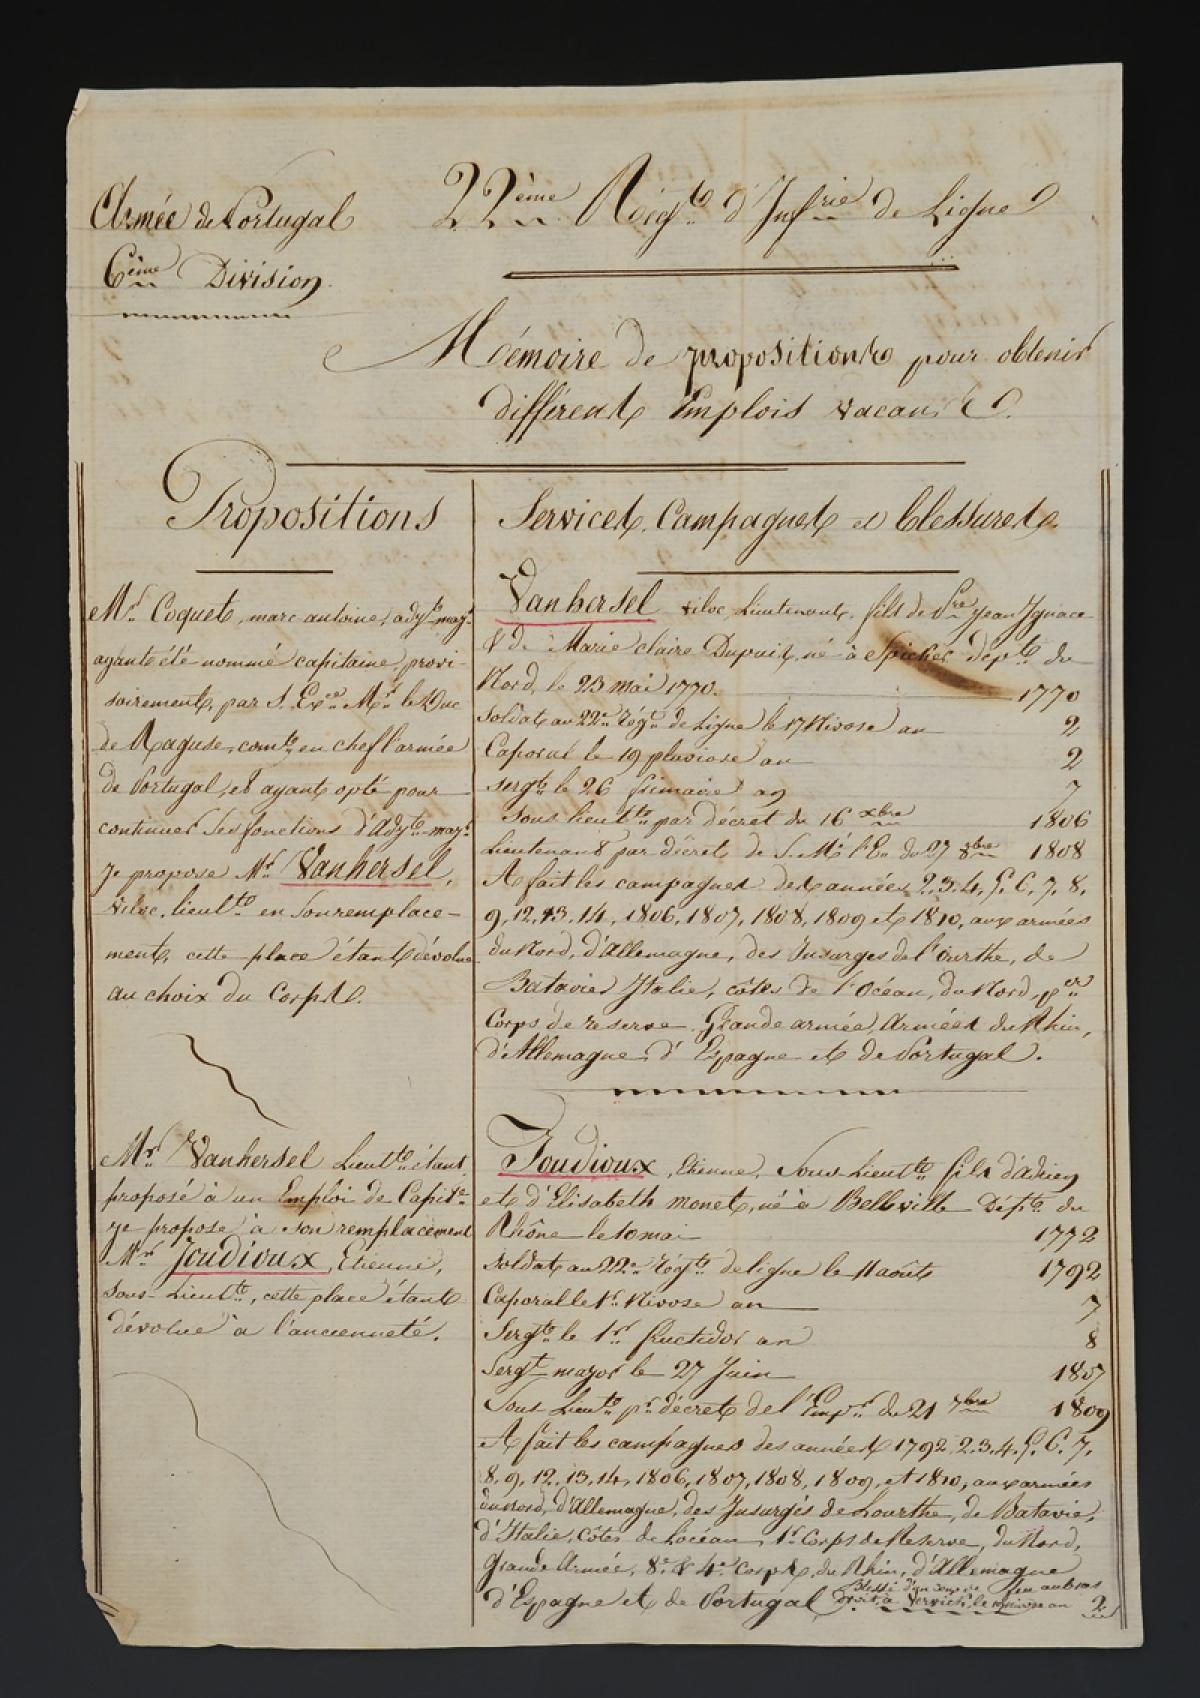 Armée de Portugal
6ème Division
22ème Régt d'Infrie de Ligne
Mémoire de propositions pour obtenir
différents Emplois vacants.
Propositions
Mr Coquet, marc antoine, adjt majr
ayant été nommé capitaine, provi-
soirement, par S. Exce Mr le Duc
de Raguse, comt en chef l'armée
de Portugal, et ayant opté pour
continuer ses fonctions d'Adjt majr
je propose Mr Vanhersel,
lieutt en son remplace-
ment, cette place étant dévolue
au choix du Corps.
Mr Vanhersel Lieutt étant
proposé à un Emploi de Capine
je propose à son remplacement
Mr Joudioux, Etienne,
sous-Lieutt, cette place étant
dévolue à l'ancienneté.
Services, Campagnes et blessures.
Vanhersel Lieutenant, fils de Jean Ignace
& de Marie claire Dupuis, né à Spicker dépt du
Nord, le 23 mai 1770. 1770
soldat au 22e Régt de Ligne le 17 Nivose an 2
Caporal le 19 pluviose an 2
sergt le 26 frimaire an 7
sous lieutt par décret du 16 xbre 1806
Lieutenant par décret de S. M. l'E. du 27 8bre 1808
A fait les campagnes des années 2, 3, 4, 5, 6, 7, 8,
9, 12, 13, 14, 1806, 1807, 1808, 1809 et 1810, aux armées
du Nord, d'Allemagne, des Insurgés de l'Ourthe, de
Batavie, Italie, côtes de l'Océan, du Nord, per
Corps de reserve, Grande armée, Armées du Rhin,
d'Allemagne, d'Espagne et de Portugal.
Joudioux, Etienne, Sous-Lieutt fils d'adrien
et d'Elisabeth monet, né à Belleville Dépt du
Rhône le 10 mai 1772
soldat au 22e Régt de ligne le 11 août 1792
Caporal le 1r Nivose an 7
Sergt le 1r fructidor an 8
Sergt major le 27 Juin 1807
Sous Lieutt pr décret de l'Empr du 21 7bre 1809
A fait les campagnes des années 1792, 2, 3, 4, 5, 6, 7,
8, 9, 12, 13, 14, 1806, 1807, 1808, 1809, et 1810, aux armées
du Nord, d'Allemagne, des Insurgés de Lourthe, de Batavie,
d'Italie, Côtes de Locéan, 1r Corps de Reserve, du Nord,
Grande Armée, 8e & 4e Corps, du Rhin, d'Allemagne
d'Espagne et de Portugal Blessé d'un coup de feu au bras
droit à Vervich, le nivose an 2